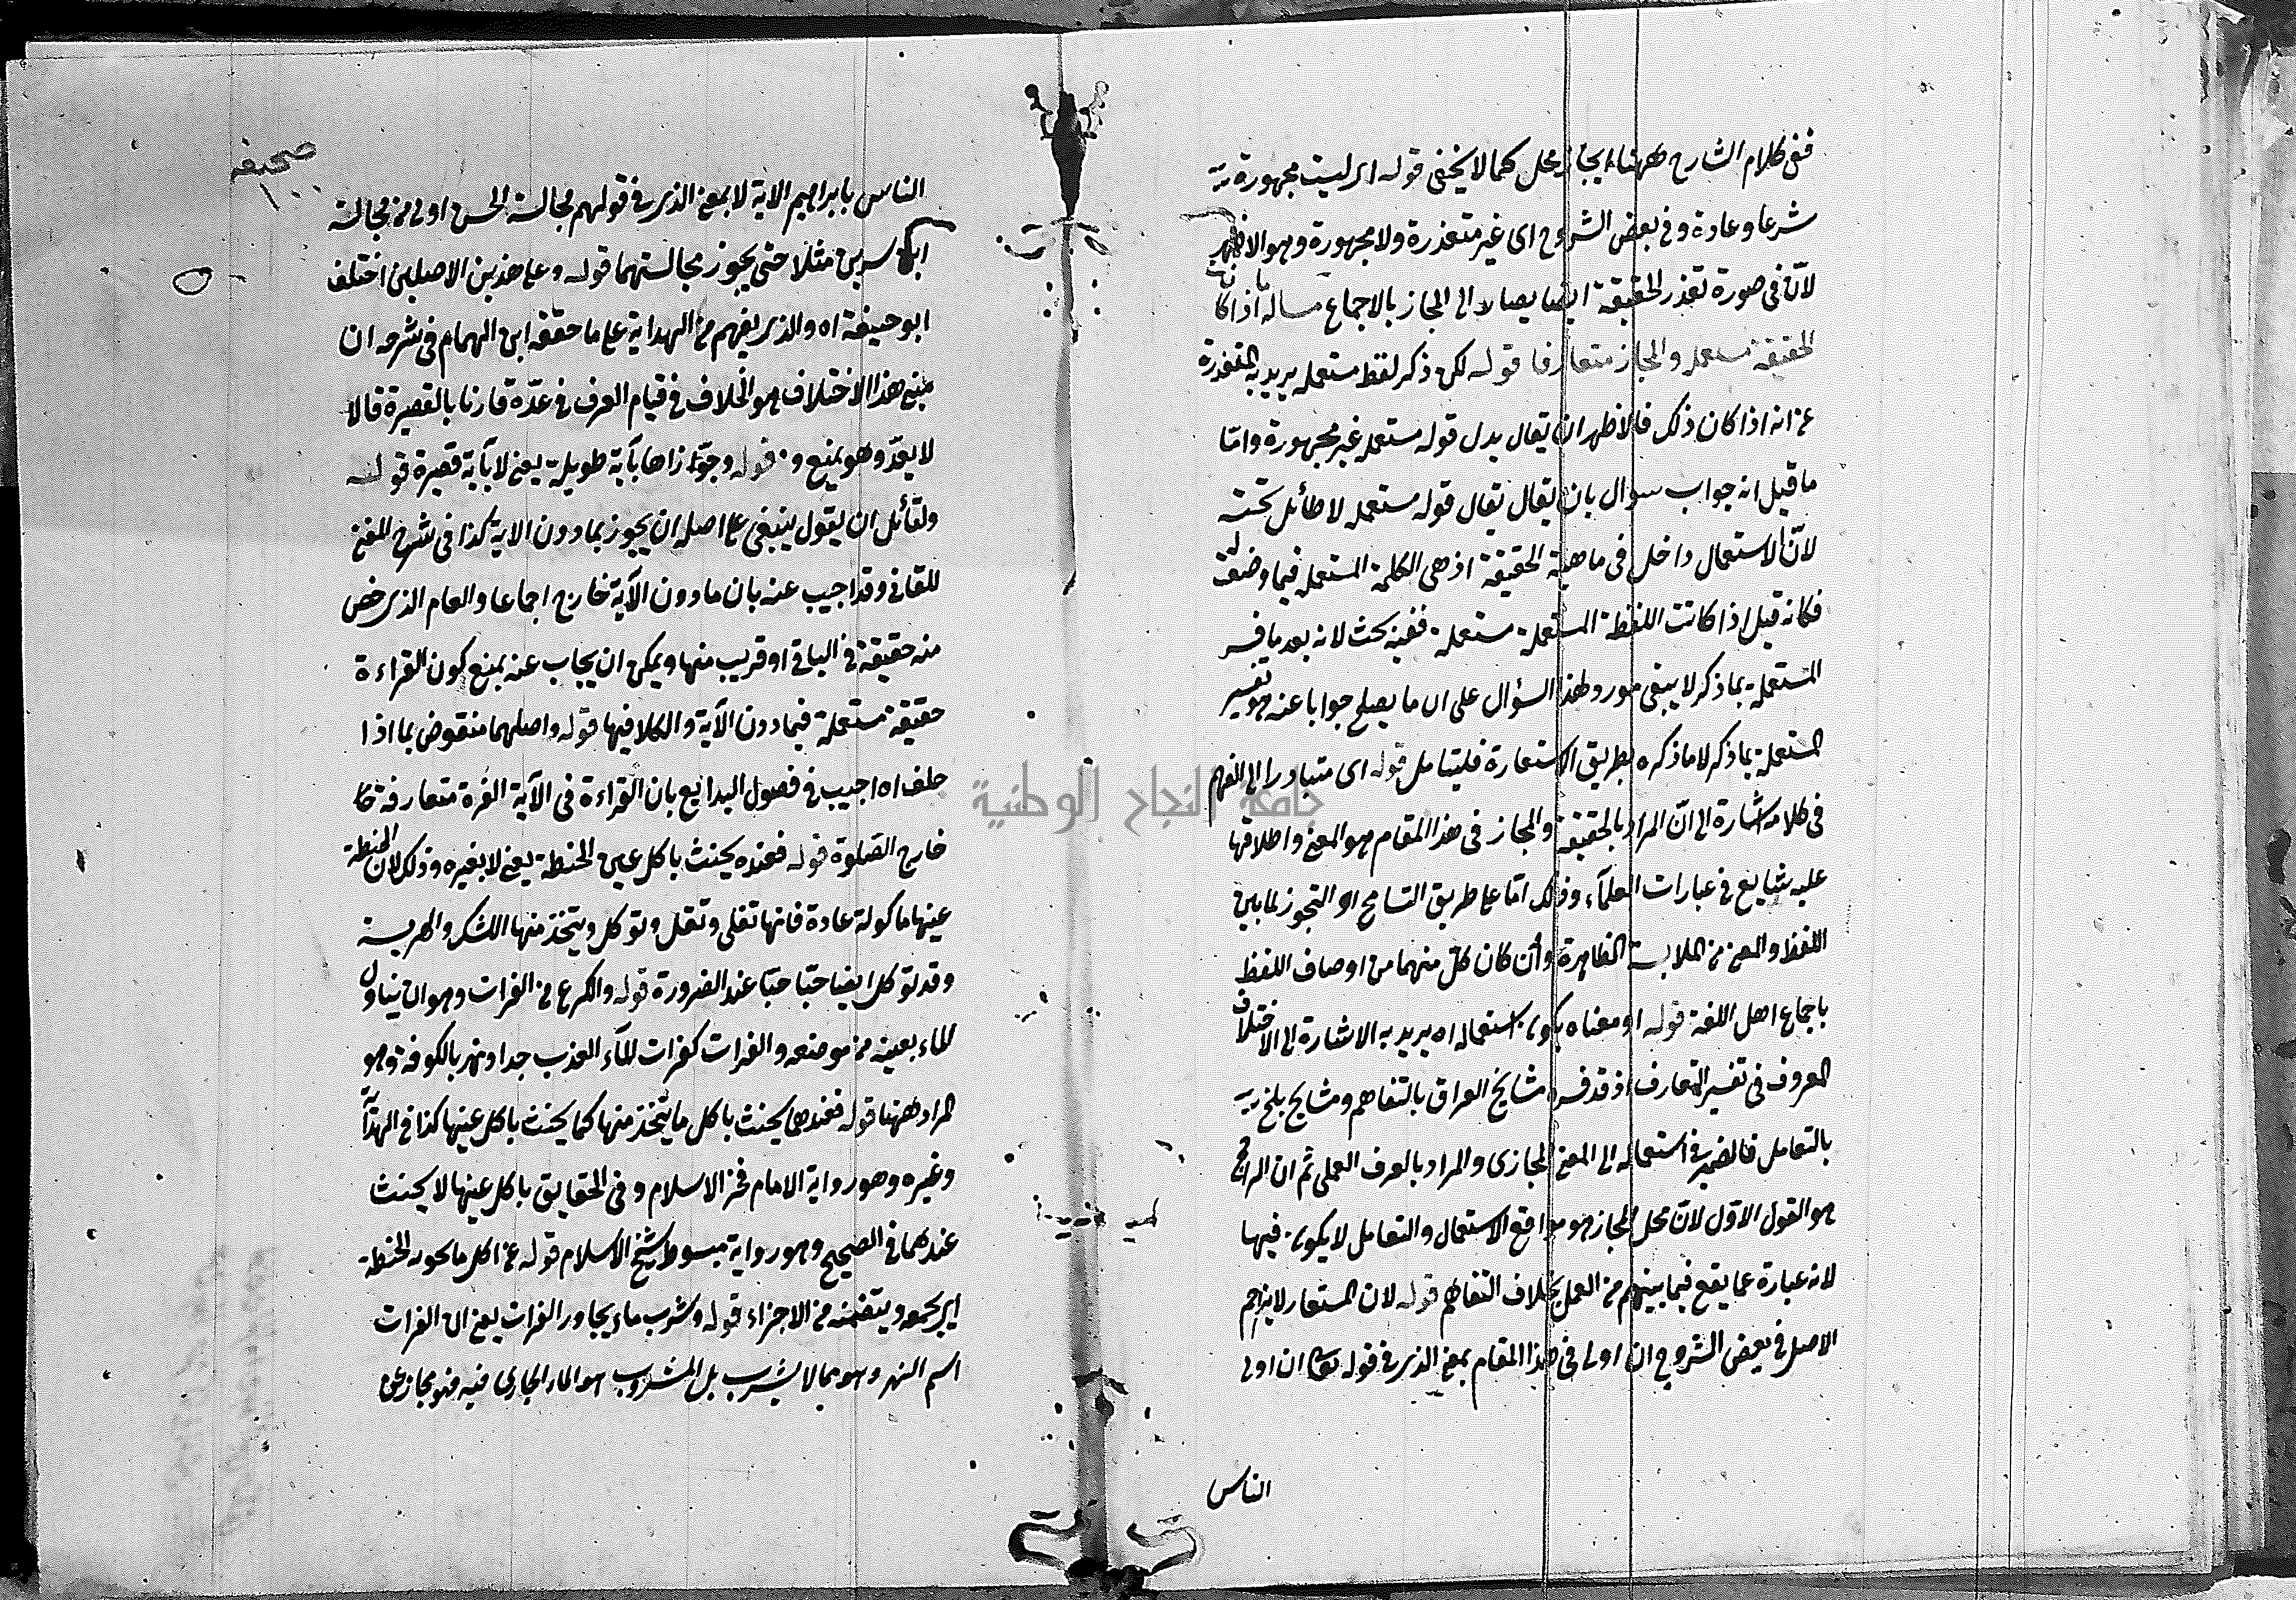 ففي كلام الشارح ههنا ايجاز مخل كما لا يخفى قوله اى ليست مهجورة
شرعا وعادة وفي بعض الشروح اى غير متعذرة ولا مهجورة وهو الاظهر
لان في صورة تعذر الحقيقة ايضا يصار الى المجاز بالاجماع مسألة اذا كانت
الحقيقة مستعملة والمجاز متعارفا قوله لكن ذكر لفظ مستعملة يريد به المتعذرة
عنه انه اذا كان ذلك فالاظهر ان يقال بدل قوله مستعملة غير مهجورة واما
ما قيل انه جواب سؤال بان يقال يقال قوله مستعملة لا طائل تحته
لان الاستعمال داخل في ماهية الحقيقة اذ هي الكلمة المستعملة فيما وضعت له
فكانه قيل اذا كانت اللفظة المستعملة مستعملة ففيه بحث لانه بعد ما فسر
المستعملة بما ذكر لا يبقى مورد لهذا السؤال على ان ما يصلح جوابا عنه هو تفسير
المستعملة بما ذكر لا ما ذكره بطريق الاستعارة فليتامل قوله اى متبادرا الى الفهم
في كلامه اشارة الى ان المراد بالحقيقة والمجاز في هذا المقام هو المعنى واطلاقها
عليه شايع في عبارات العلماء وذلك اما على طريق التسامح او التجوز لما بين
اللفظ والمعنى من الملابسة الظاهرة وان كان كل منهما من اوصاف اللفظ
باجماع اهل اللغة قوله او معناه يكون استعماله اه يريد به الاشارة الى الاختلاف
المعروف في تفسير المتعارف اذ قد فسره مشايخ العراق بالتفاهم ومشايخ بلخ
بالتعامل فالضمير في استعماله الى المعنى المجازى والمراد بالعرف العملى ثم ان الراجح
هو القول الاول لان محل المجاز هو مواقع الاستعمال والتعامل لا يكون فيها
لانه عبارة عما يقع فيما بينهم من العمل بخلاف التفاهم قوله لان المستعار لا يزاحم
الاصل في بعض الشروح ان اولى في هذا المقام بمعنى الذى في قوله تعالى ان اولى
الناس
صحيفه
١٠٠
الناس بابراهيم الاية لا بمعنى الذى في قولهم مجالسة الحسن اولى من مجالسة
ابن سيرين مثلا حتى يجوز مجالستهما قوله وعلى هذين الاصلين اختلف
ابو حنيفة اه والذى يفهم من الهداية على ما حققه ابن الهمام في شرحه ان
مبنى هذا الاختلاف هو الخلاف في قيام العرف في عدّه قارئا بالقصيرة قالا
لا يعدّ وهو يمنع قوله وجوّزاها بآية طويلة يعنى لا بآية قصيرة قوله
ولقائل ان يقول ينبغى على اصله ان يجوز بما دون الاية كذا في شرح المغنى
للقاني وقد اجيب عنه بان ما دون الآية خارج اجماعا والعام الذى خص
منه حقيقة في الباقى او قريب منها ويمكن ان يجاب عنه بمنع كون القراءة
حقيقة مستعملة فيما دون الآية والكلام فيها قوله واصلهما منقوض بما اذا
حلف اه اجيب في فصول البدايع بان القراءة في الآية القصيرة متعارفة
خارج الصلوة قوله فعنده يحنث باكل عين الحنطة يعنى لا بغيره وذلك لان الحنطة
عينها ماكولة عادة فانها تغلى وتقلى وتؤكل ويتخذ منها الكشك والهريسة
وقد تؤكل ايضا حبّا حبّا عند الضرورة قوله والكرع من الفرات وهو ان يتناول
الماء بعينه من موضعه والفرات كغراب الماء العذب جدا ونهر بالكوفة وهو
المراد ههنا قوله فعندهما يحنث باكل ما يتخذ منها كما يحنث باكل عينها كذا في الهداية
وغيره وهو رواية الامام فخر الاسلام وفي الحقايق باكل عينها لا يحنث
عندهما في الصحيح وهو رواية مبسوط شيخ الاسلام قوله من اكل ما تحويه الحنطة
اى تحويه ويتضمنه من الاجزاء قوله وشرب ماء يجاور الفرات يعنى ان الفرات
اسم النهر وهو مما لا يشرب بل المشروب هو الماء الجارى فيه فهو مجاز
جامعة النجاح الوطنية